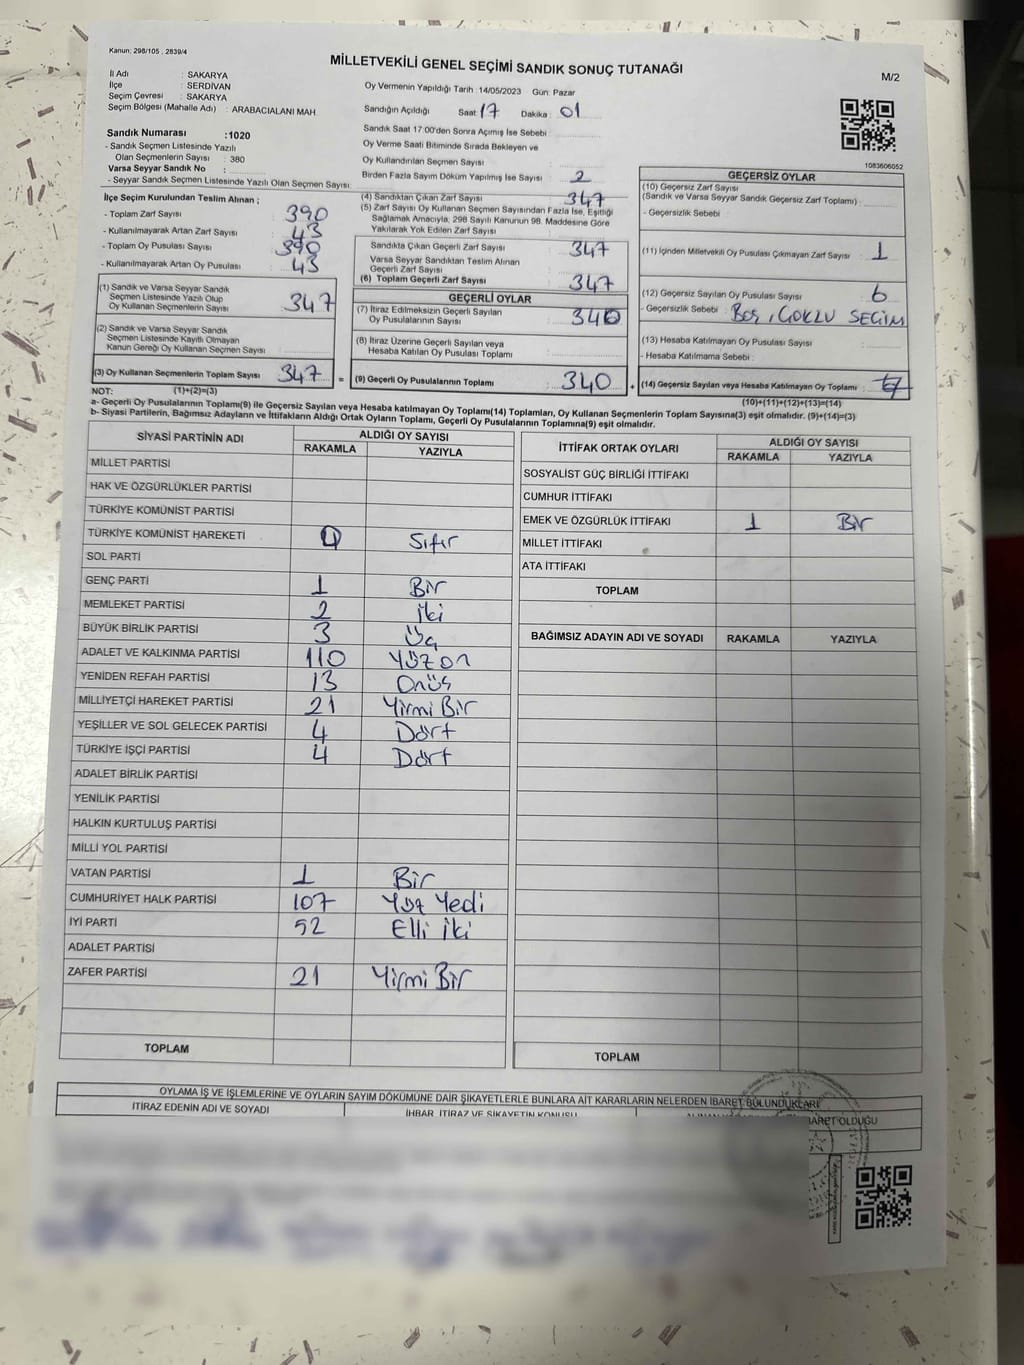 Kanun: 298/105 , 2839/4
MİLLETVEKİLİ GENEL SEÇİMİ SANDIK SONUÇ TUTANAĞI
M/2
İl Adı : SAKARYA
İlçe : SERDİVAN
Seçim Çevresi : SAKARYA
Seçim Bölgesi (Mahalle Adı) : ARABACIALANI MAH
Sandık Numarası :1020
- Sandık Seçmen Listesinde Yazılı
Olan Seçmenlerin Sayısı : 380
Varsa Seyyar Sandık No :
- Seyyar Sandık Seçmen Listesinde Yazılı Olan Seçmen Sayısı:
Oy Vermenin Yapıldığı Tarih :14/05/2023 Gün: Pazar
Sandığın Açıldığı Saat 17 Dakika : 01
Sandık Saat 17:00'den Sonra Açılmış İse Sebebi :
Oy Verme Saati Bitiminde Sırada Bekleyen ve
Oy Kullandırılan Seçmen Sayısı :
Birden Fazla Sayım Döküm Yapılmış İse Sayısı : 2
1083606052
İlçe Seçim Kurulundan Teslim Alınan ;
- Toplam Zarf Sayısı : 390
- Kullanılmayarak Artan Zarf Sayısı : 43
- Toplam Oy Pusulası Sayısı : 390
- Kullanılmayarak Artan Oy Pusulası : 43
(1) Sandık ve Varsa Seyyar Sandık
Seçmen Listesinde Yazılı Olup
Oy Kullanan Seçmenlerin Sayısı : 347
(2) Sandık ve Varsa Seyyar Sandık
Seçmen Listesinde Kayıtlı Olmayan
Kanun Gereği Oy Kullanan Seçmen Sayısı :
(3) Oy Kullanan Seçmenlerin Toplam Sayısı : 347 =
(4) Sandıktan Çıkan Zarf Sayısı : 347
(5) Zarf Sayısı Oy Kullanan Seçmen Sayısından Fazla İse, Eşitliği
Sağlamak Amacıyla, 298 Sayılı Kanunun 98. Maddesine Göre
Yakılarak Yok Edilen Zarf Sayısı :
Sandıkta Çıkan Geçerli Zarf Sayısı : 347
Varsa Seyyar Sandıktan Teslim Alınan
Geçerli Zarf Sayısı :
(6) Toplam Geçerli Zarf Sayısı : 347
GEÇERLİ OYLAR
(7) İtiraz Edilmeksizin Geçerli Sayılan
Oy Pusulalarının Sayısı : 340
(8) İtiraz Üzerine Geçerli Sayılan veya
Hesaba Katılan Oy Pusulası Toplamı :
(9) Geçerli Oy Pusulalarının Toplamı : 340 +
GEÇERSİZ OYLAR
(10) Geçersiz Zarf Sayısı
(Sandık ve Varsa Seyyar Sandık Geçersiz Zarf Toplamı) :
- Geçersizlik Sebebi :
(11) İçinden Milletvekili Oy Pusulası Çıkmayan Zarf Sayısı : 1
(12) Geçersiz Sayılan Oy Pusulası Sayısı : 6
- Geçersizlik Sebebi : BOŞ, ÇOKLU SEÇİM
(13) Hesaba Katılmayan Oy Pusulası Sayısı :
- Hesaba Katılmama Sebebi :
(14) Geçersiz Sayılan veya Hesaba Katılmayan Oy Toplamı : 7
NOT: (1)+(2)=(3)
(10)+(11)+(12)+(13)=(14)
a- Geçerli Oy Pusulalarının Toplamı(9) ile Geçersiz Sayılan veya Hesaba katılmayan Oy Toplamı(14) Toplamları, Oy Kullanan Seçmenlerin Toplam Sayısına(3) eşit olmalıdır. (9)+(14)=(3)
b- Siyasi Partilerin, Bağımsız Adayların ve İttifakların Aldığı Ortak Oyların Toplamı, Geçerli Oy Pusulalarının Toplamına(9) eşit olmalıdır.
SİYASİ PARTİNİN ADI ALDIĞI OY SAYISI
RAKAMLA YAZIYLA
MİLLET PARTİSİ
HAK VE ÖZGÜRLÜKLER PARTİSİ
TÜRKİYE KOMÜNİST PARTİSİ
TÜRKİYE KOMÜNİST HAREKETİ 0 Sıfır
SOL PARTİ
GENÇ PARTİ 1 Bir
MEMLEKET PARTİSİ 2 iki
BÜYÜK BİRLİK PARTİSİ 3 Üç
ADALET VE KALKINMA PARTİSİ 110 Yüz on
YENİDEN REFAH PARTİSİ 13 Onüç
MİLLİYETÇİ HAREKET PARTİSİ 21 Yirmi Bir
YEŞİLLER VE SOL GELECEK PARTİSİ 4 Dört
TÜRKİYE İŞÇİ PARTİSİ 4 Dört
ADALET BİRLİK PARTİSİ
YENİLİK PARTİSİ
HALKIN KURTULUŞ PARTİSİ
MİLLİ YOL PARTİSİ
VATAN PARTİSİ 1 Bir
CUMHURİYET HALK PARTİSİ 107 Yüz Yedi
İYİ PARTİ 52 Elli İki
ADALET PARTİSİ
ZAFER PARTİSİ 21 Yirmi Bir
TOPLAM
İTTİFAK ORTAK OYLARI ALDIĞI OY SAYISI
RAKAMLA YAZIYLA
SOSYALİST GÜÇ BİRLİĞİ İTTİFAKI
CUMHUR İTTİFAKI
EMEK VE ÖZGÜRLÜK İTTİFAKI 1 Bir
MİLLET İTTİFAKI
ATA İTTİFAKI
TOPLAM
BAĞIMSIZ ADAYIN ADI VE SOYADI RAKAMLA YAZIYLA
TOPLAM
OYLAMA İŞ VE İŞLEMLERİNE VE OYLARIN SAYIM DÖKÜMÜNE DAİR ŞİKAYETLERLE BUNLARA AİT KARARLARIN NELERDEN İBARET BULUNDUKLARI
İTİRAZ EDENİN ADI VE SOYADI İHBAR, İTİRAZ VE ŞİKAYETİN KONUSU
İBARET OLDUĞU